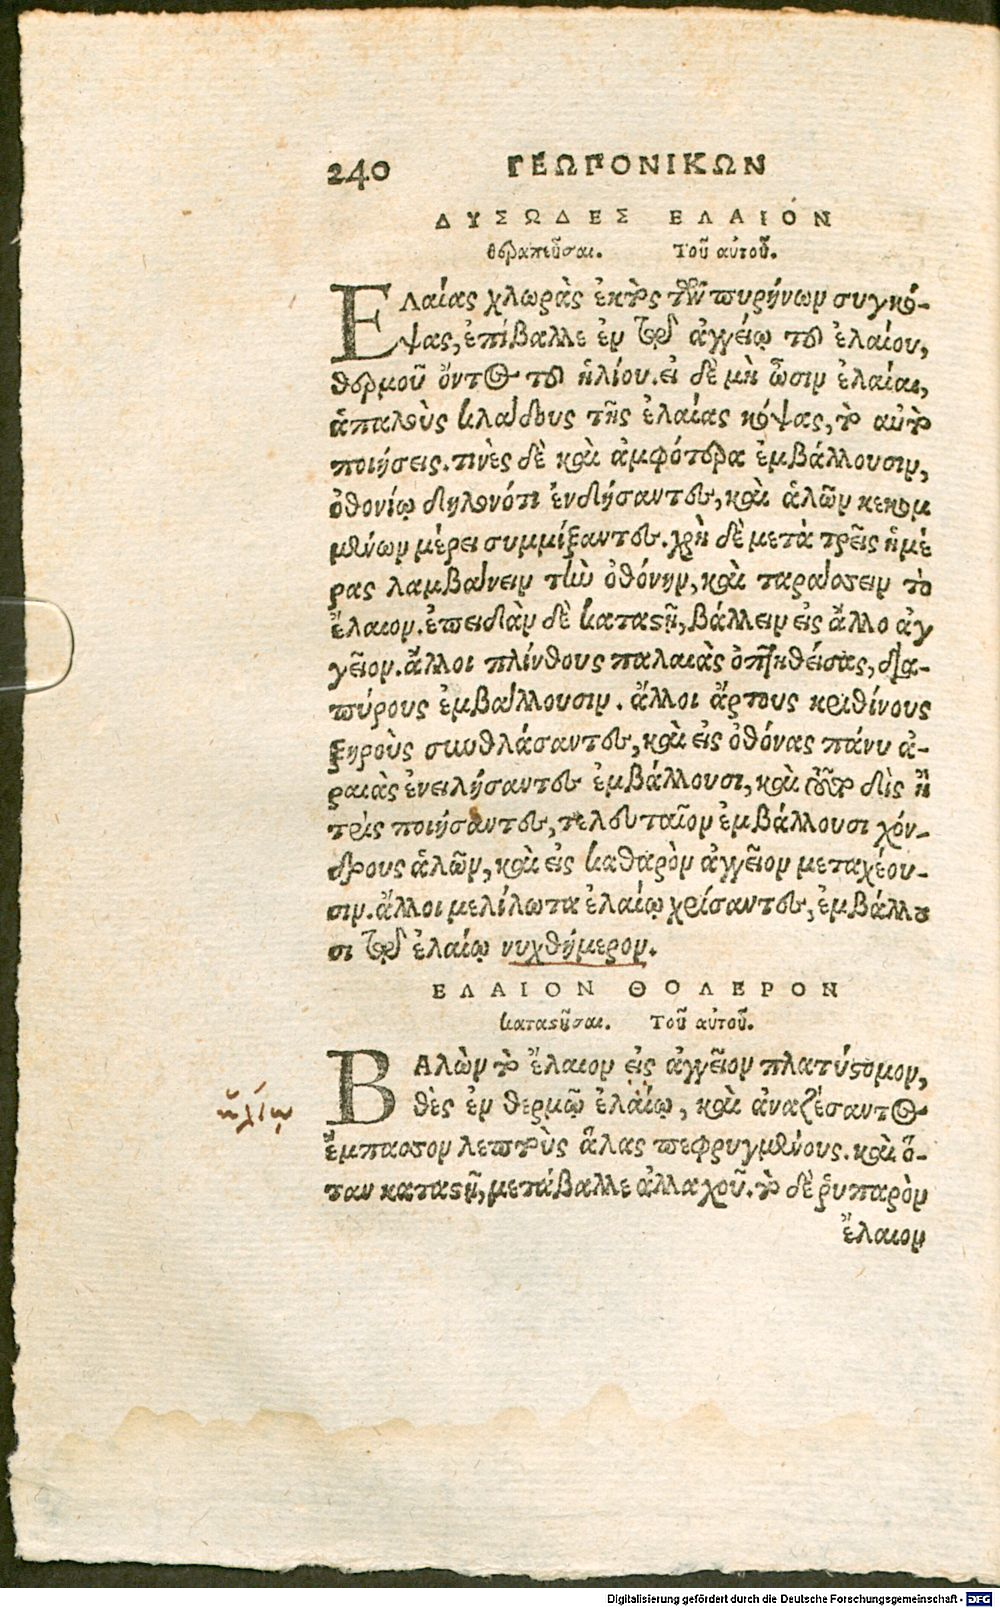 240 ΓΕΩΠΟΝΙΚΩΝ
ΔΥΣΩΔΕΣ ΕΛΑΙΟΝ
θεραπεῦσαι. Τοῦ αὐτοῦ.
ΕΛαίας χλωρὰς ἐκτὸς τῶν πυρήνων συγκό-
ψας, ἐπίβαλλε ἐν τῷ ἀγγείῳ τοῦ ἐλαίου,
θερμοῦ ὄντος τοῦ ἡλίου. εἰ δὲ μὴ ὦσιν ἐλαίαι,
ἁπαλοὺς κλάδους τῆς ἐλαίας κόψας, τὸ αὐτὸ
ποιήσεις. τινὲς δὲ καὶ ἀμφότερα ἐμβάλλουσιν,
ὀθονίῳ δηλονότι ἐνδήσαντες, καὶ ἁλῶν κεκομ
μένων μέρει συμμίξαντες. χρὴ δὲ μετὰ τρεῖς ἡμέ
ρας λαμβάνειν τὴν ὀθόνην, καὶ ταράσσειν τὸ
ἔλαιον. ἐπειδὰν δὲ καταστῇ, βάλλειν εἰς ἄλλο ἀγ
γεῖον. ἄλλοι πλίνθους παλαιὰς ὀπτηθείσας, δια-
πύρους ἐμβάλλουσιν. ἄλλοι ἄρτους κριθίνους
ξηροὺς συνθλάσαντες, καὶ εἰς ὀθόνας πάνυ ἀ-
ραιὰς ἐνειλήσαντες ἐμβάλλουσι, καὶ τοῦτο δὶς ἢ
τρὶς ποιήσαντες, τελευταῖον ἐμβάλλουσι χόν-
δρους ἁλῶν, καὶ εἰς καθαρὸν ἀγγεῖον μεταχέου-
σιν. ἄλλοι μελίλωτα ἐλαίῳ χρίσαντες, ἐμβάλλου
σι τῷ ἐλαίῳ νυχθήμερον.
ΕΛΑΙΟΝ ΘΟΛΕΡΟΝ
καταστῆσαι. Τοῦ αὐτοῦ.
ΒΑλὼν τὸ ἔλαιον εἰς ἀγγεῖον πλατύστομον,
θὲς ἐν θερμῷ ἐλαίῳ, καὶ ἀναζέσαντος
ἡλίῳ
ἔμπασσον λεπτοὺς ἅλας πεφρυγμένους. καὶ ὅ-
ταν καταστῇ, μετάβαλλε ἀλλαχοῦ. τὸ δὲ ῥυπαρὸν
ἔλαιον
Digitalisierung gefördert durch die Deutsche Forschungsgemeinschaft - DFG